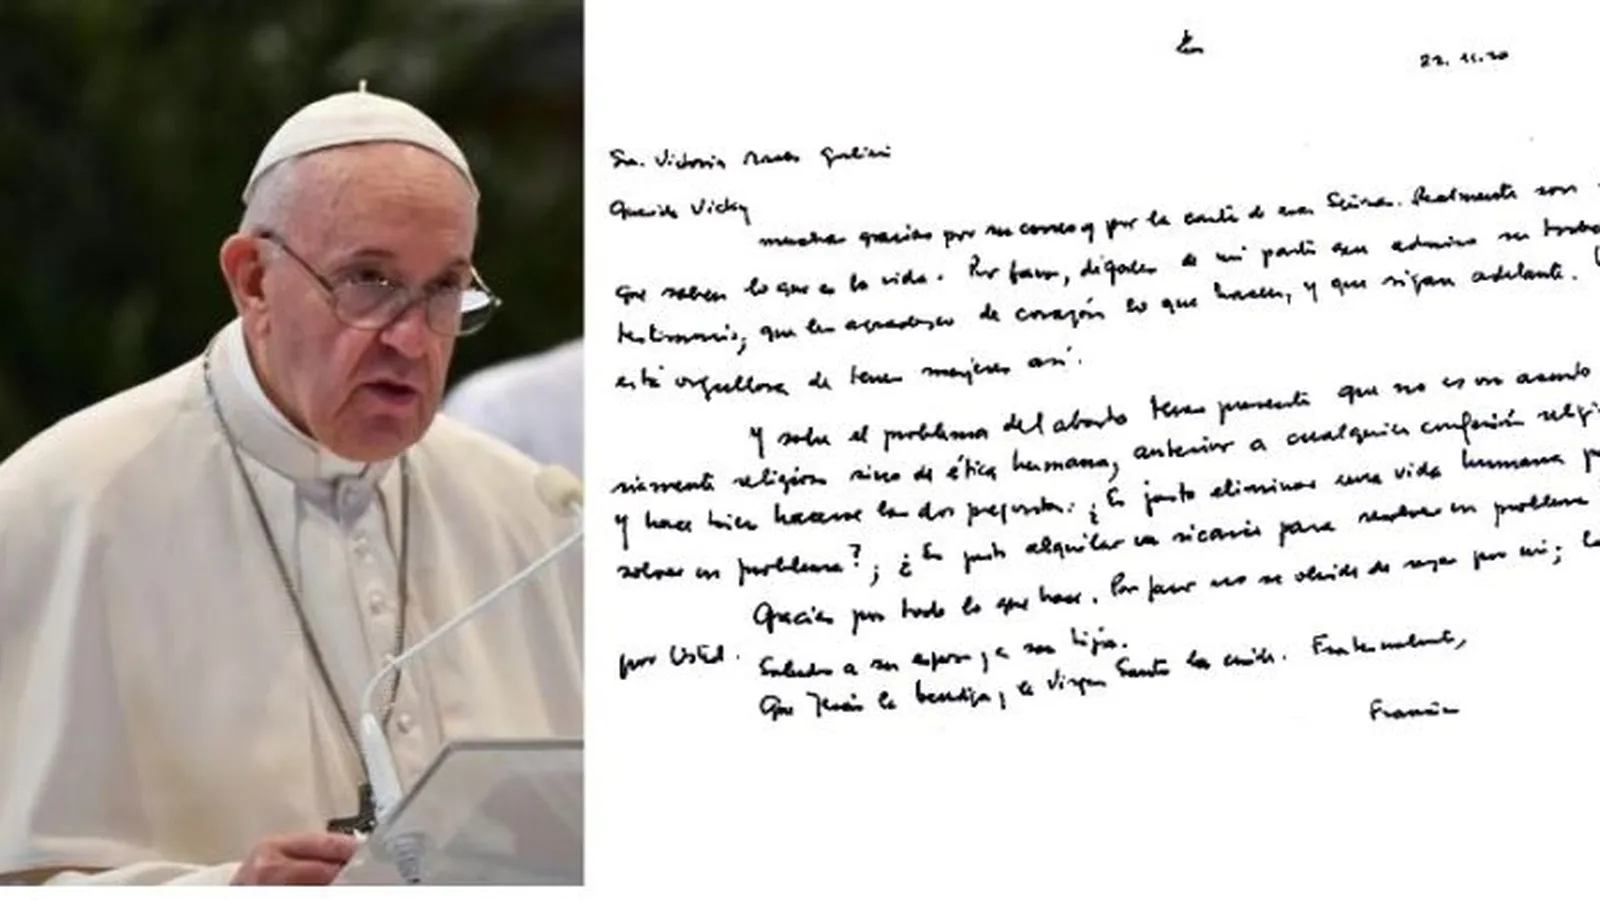 22.11.20
Sra. Victoria Morales Gorleri
Querida Vicky
muchas gracias por su correo y por la carta de esas Señoras. Realmente son
que saben lo que es la vida. Por favor, dígales de mi parte que admiro su trabajo
testimonio; que les agradezco de corazón lo que hacen, y que sigan adelante.
está orgullosa de tener mujeres así.
Y sobre el problema del aborto tener presente que no es un asunto
riamente religioso sino de ética humana, anterior a cualquier confesión
y hace bien hacerse las dos preguntas: ¿Es justo eliminar una vida humana
solver un problema?; ¿Es justo alquilar un sicario para resolver un problema
Gracias por todo lo que hace. Por favor no se olvide de rezar por mí; lo
por Usted.
Saludos a su esposo y a sus hijos.
Que Jesús la bendiga y la Virgen Santa la cuide. Fraternalmente,